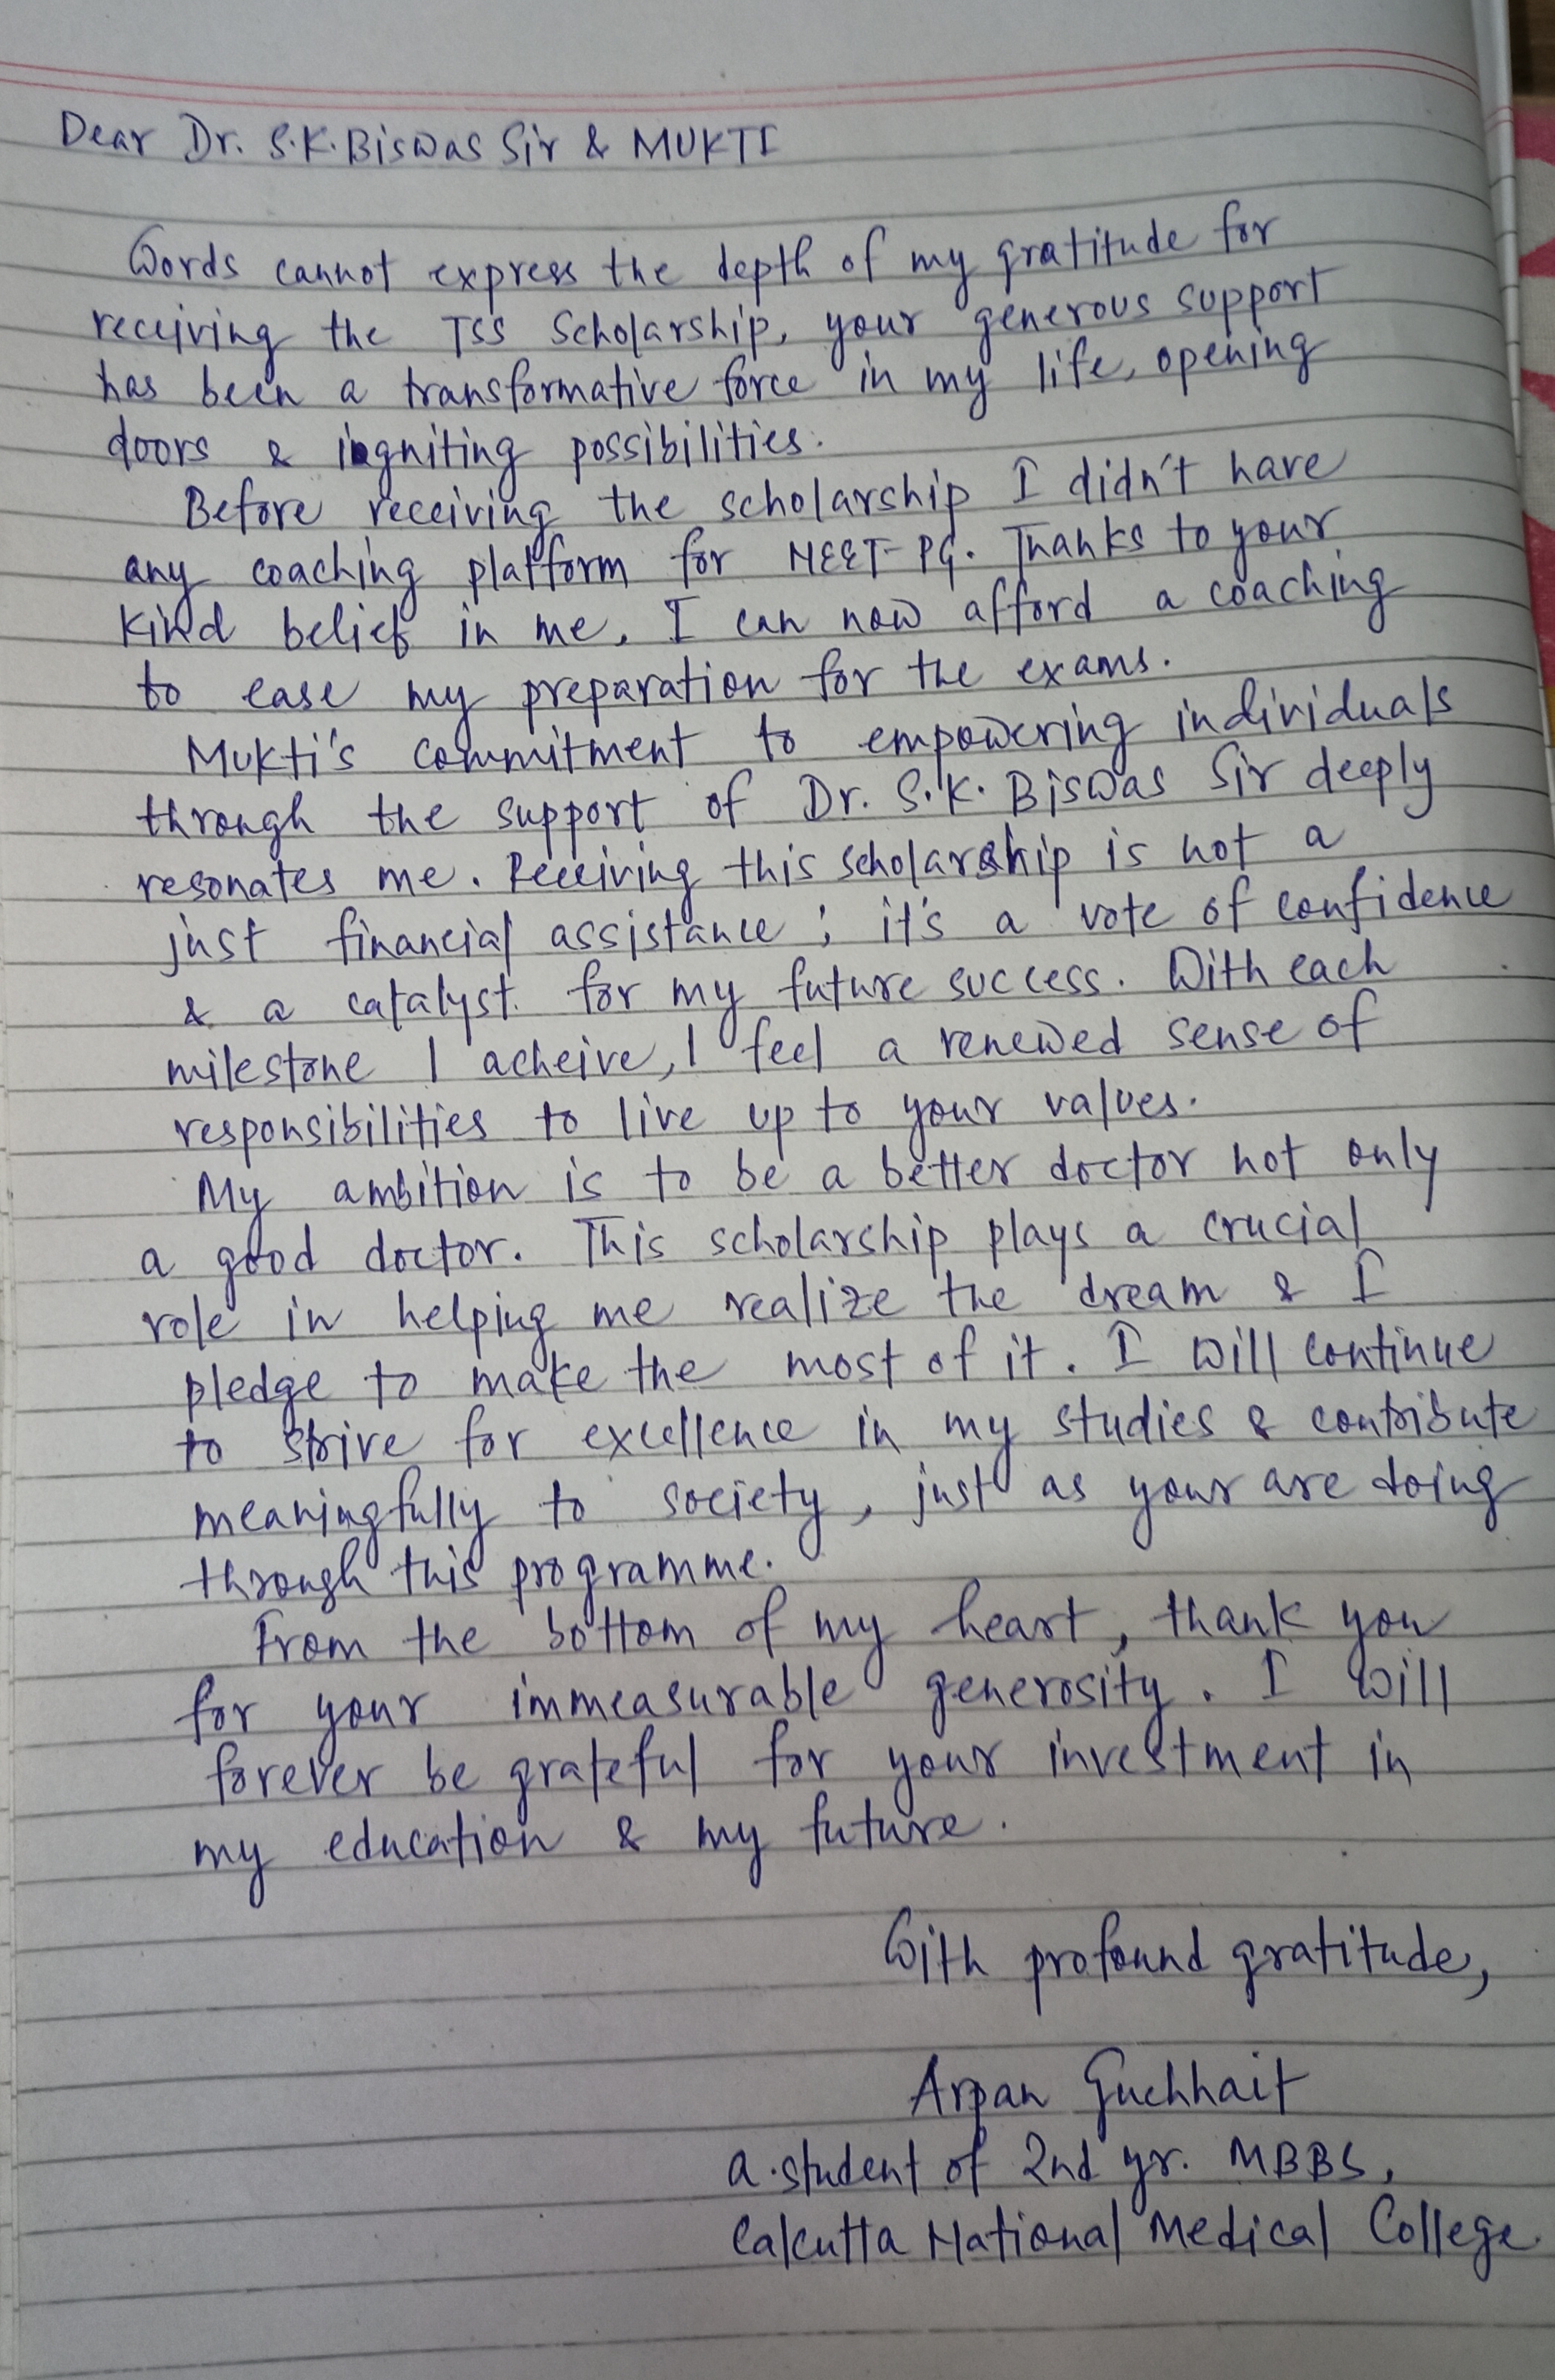 Dear Dr. S.K. Biswas Sir & MUKTI
Words cannot express the depth of my gratitude for
receiving the TSS Scholarship, your generous support
has been a transformative force in my life, opening
doors & igniting possibilities.
Before receiving the scholarship I didn't have
any coaching platform for NEET-PG. Thanks to your
kind belief in me, I can now afford a coaching
to ease my preparation for the exams.
Mukti's commitment to empowering individuals
through the support of Dr. S.K. Biswas Sir deeply
resonates me. Receiving this scholarship is not a
just financial assistance; it's a vote of confidence
& a catalyst. for my future success. With each
milestone I acheive, I feel a renewed sense of
responsibilities to live up to your values.
My ambition is to be a better doctor not only
a good doctor. This scholarship plays a crucial
role in helping me realize the dream & I
pledge to make the most of it. I will continue
to strive for excellence in my studies & contribute
meaningfully to society, just as your are doing
through this programme.
From the bottom of my heart, thank you
for your immeasurable generosity. I will
forever be grateful for your investment in
my education & my future.
With profound gratitude,
Arpan Guchhait
a student of 2nd yr. MBBS,
Calcutta National Medical College